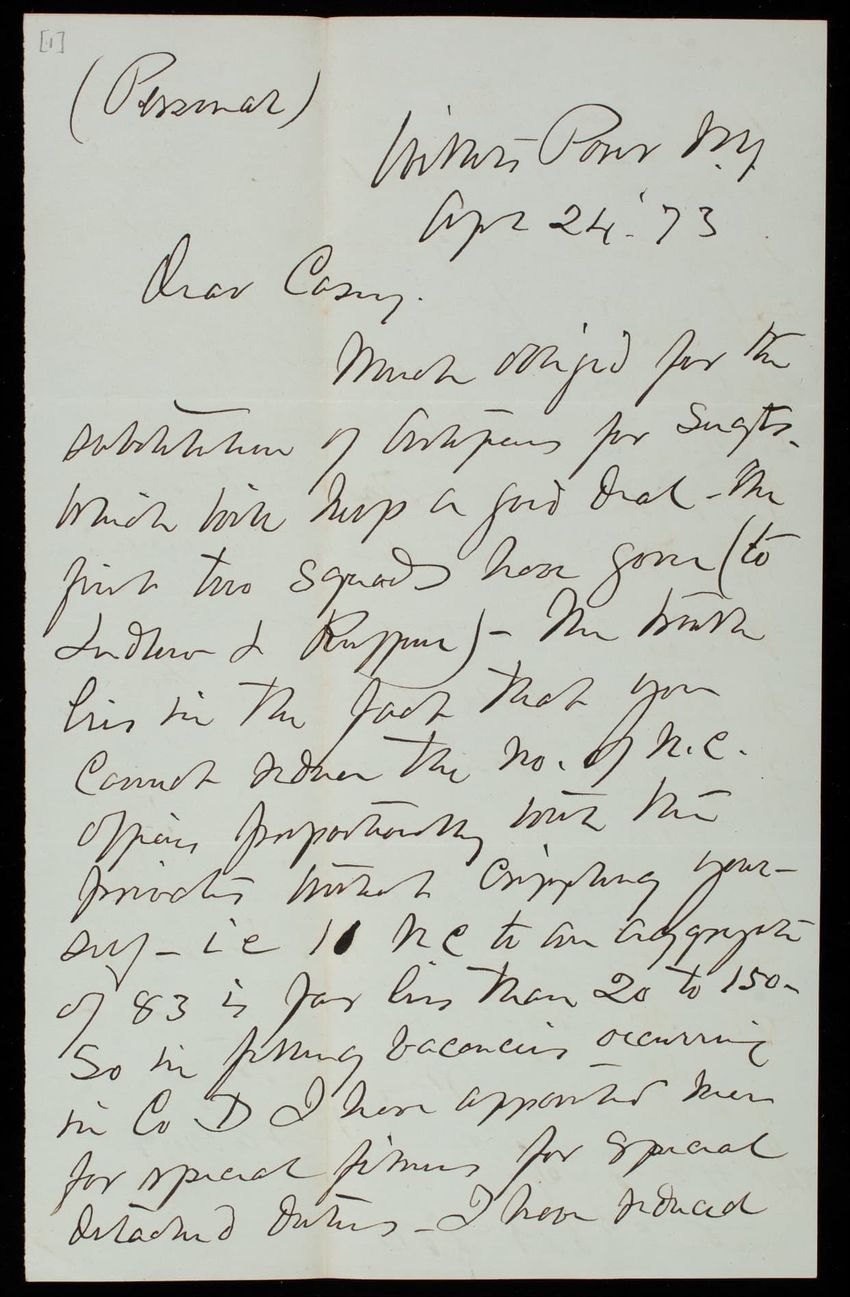 [1]
(Personal)
Willets Point N.Y.
Apr 24. '73
Dear Casey.
Much oblig'd for the
substitution of Artificers for Sergts.
which will help a good deal - The
first two squads have gone (to
Ludlow & Ruffner) - The trouble
lies in the fact that you
cannot reduce the No. of N.C.
officers proportionally with the
privates without crippling your-
self - i e 11 N C to an aggregate
of 83 is far less than 20 to 150 -
So in filling vacancies occurring
in Co D I have appointed men
for special fitness for special
detached duties - I have reduced